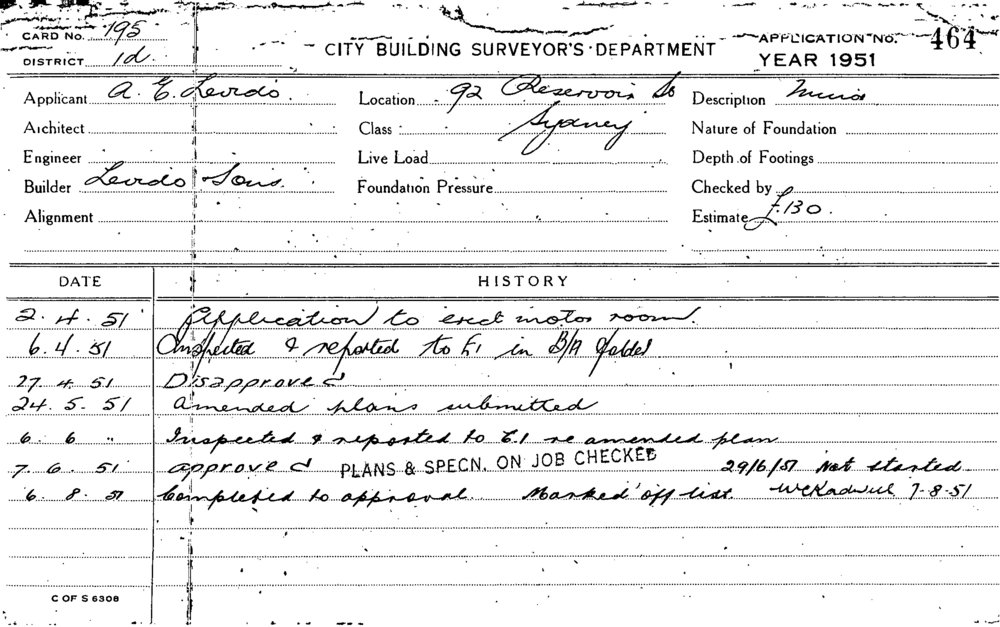 CARD No. 195
DISTRICT 1d
CITY BUILDING SURVEYOR'S DEPARTMENT
APPLICATION No. 464
YEAR 1951
Applicant A. E. Levido.
Architect
Engineer
Builder Levido & Sons.
Alignment
Location 92 Reservoir St
Sydney
Class
Live Load
Foundation Pressure
Description
Nature of Foundation
Depth of Footings
Checked by
Estimate £130.
DATE HISTORY
2. 4. 51 Application to erect motor room.
6. 4. 51 Inspected & reported to E1 in B/A folder
27. 4. 51 Disapproved
24. 5. 51 Amended plans submitted
6. 6 " Inspected & reported to E.1 re amended plan
7. 6. 51 approved PLANS & SPECN. ON JOB CHECKED 29/6/51 Not started.
6. 8. 51 Completed to approval. Marked off list. 7-8-51
C OF S 6308